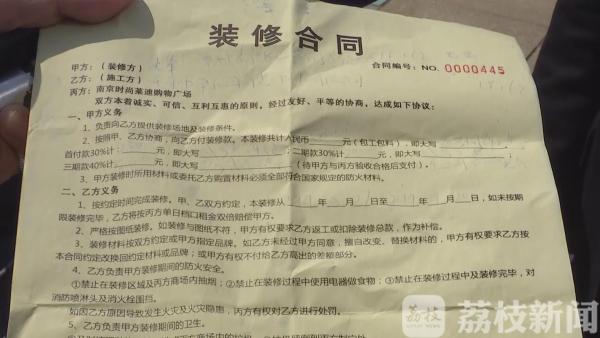 装修合同
甲方：（装修方）
合同编号：NO. 0000445
乙方：（施工方）
丙方：南京时尚莱迪购物广场
双方本着诚实、可信、互利互惠的原则，经过友好、平等的协商，达成如下协议：
一、甲方义务
1、负责向乙方提供装修场地及装修条件。
2、按照甲、乙方协商，向乙方付装修款。本装修共计人民币 元（包工包料），即大写
首付款30%计： 元，即大写 二期款30%计： 元，即大写
三期款40%计： 元，即大写 （待甲方与丙方验收合格后支付）。
3、甲方装修时所用材料或委托乙方购置材料必须全部符合国家规定的防火材料。
二、乙方义务
1、按约定时间完成装修。甲、乙双方约定，本装修从 年 月 日至 年 月 日，如未按期
限装修完毕，乙方将按丙方单日档口租金双倍赔偿甲方。
2、严格按图纸装修。如装修与图纸不符，甲方有权要求乙方返工或扣除装修总款，作为补偿。
3、装修材料按双方约定或甲方指定品牌。如乙方未经过甲方同意，擅自改变、替换材料的，甲方有权要求乙方按
本合同约定改换回约定材料或品牌；或甲方有权不付给乙方高出的差额部分。
4、乙方负责甲方装修期间的防火安全。
①禁止在装修区域及丙方商场内抽烟；②禁止在装修过程中使用电器做食物；③禁止在装修过程中及装修完毕，对
消防喷淋头及消火栓围挡。
如因乙方原因导致发生火灾及火灾隐患，丙方有权对乙方进行处罚。
5、乙方负责甲方装修期间的卫生。
荔枝
荔枝新闻